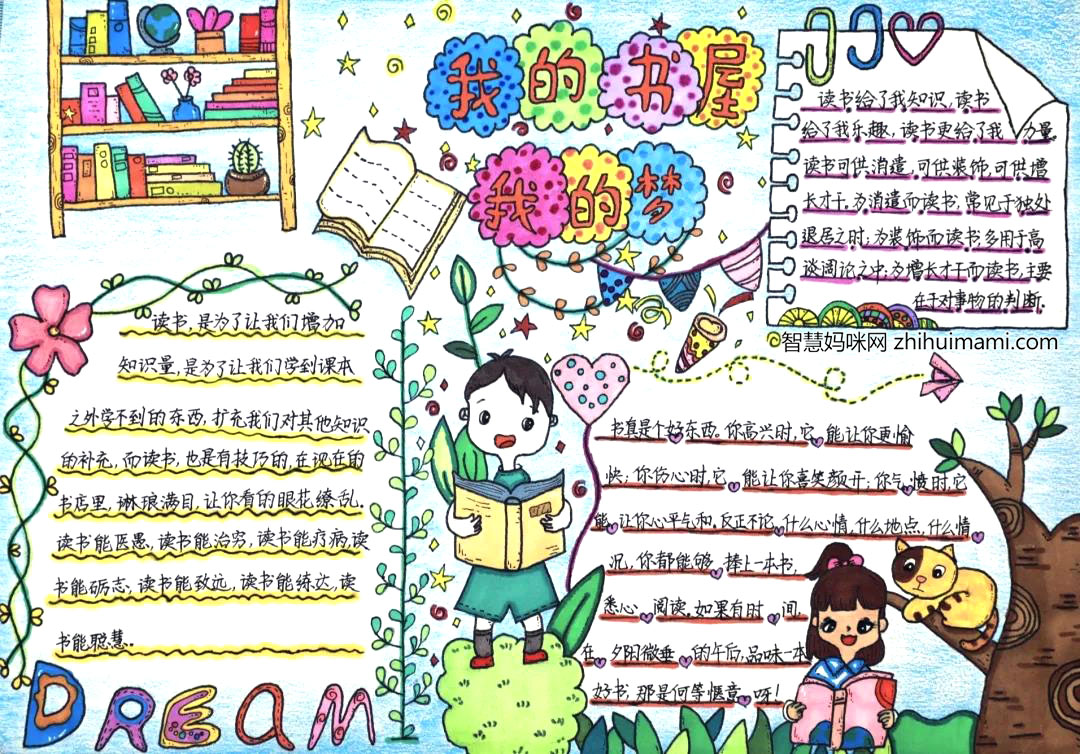 我的书屋
我的梦
读书给了我知识,读书
给了我乐趣,读书更给了我力量.
读书可供消遣,可供装饰,可供增
长才干.为消遣而读书,常见于独处
退居之时;为装饰而读书,多用于高
谈阔论之中;为增长才干而读书,主要
在于对事物的判断.
智慧妈咪网 zhihuimami.com
读书,是为了让我们增加
知识量,是为了让我们学到课本
之外学不到的东西,扩充我们对其他知识
的补充,而读书,也是有技巧的,在现在的
书店里,琳琅满目,让你看的眼花缭乱.
读书能医愚,读书能治穷,读书能疗病,读
书能砺志,读书能致远,读书能练达,读
书能聪慧.
书真是个好东西,你高兴时,它能让你更愉
快;你伤心时,它能让你喜笑颜开;你气愤时,它
能让你心平气和,反正不论什么心情,什么地点,什么情
况,你都能够捧上一本书,
悉心阅读.如果有时间,
在夕阳微垂的午后,品味一本
好书,那是何等惬意呀!
DREAM